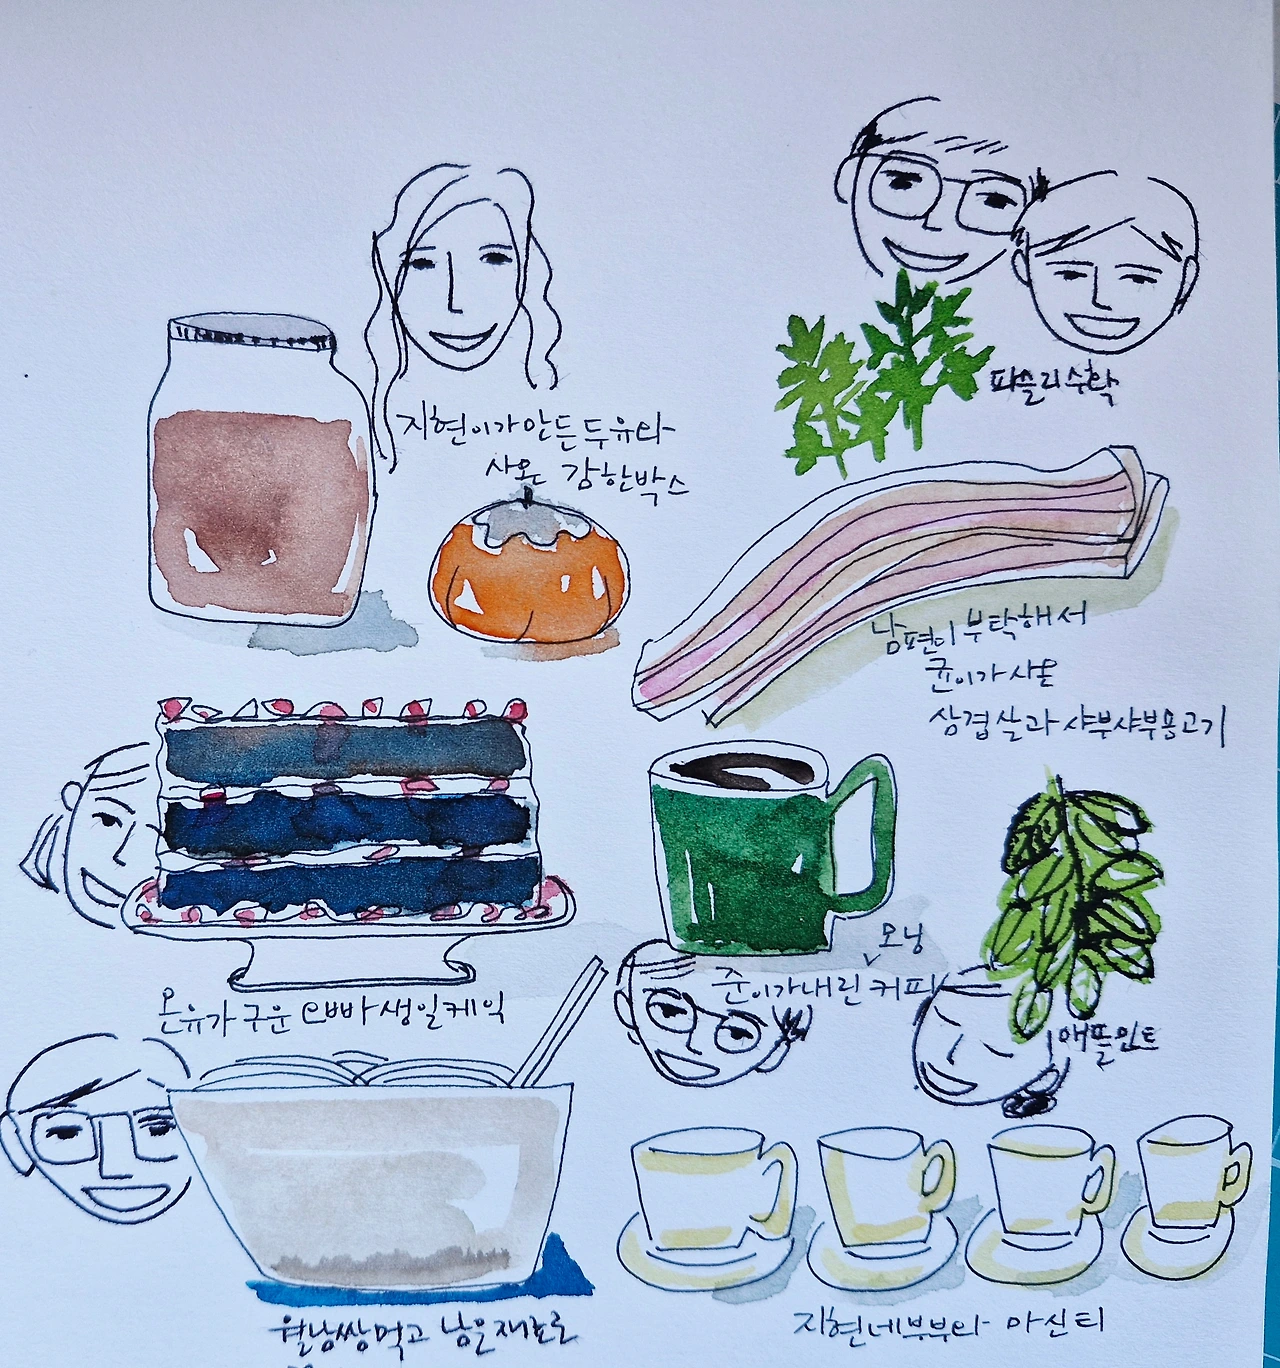 지현이가 만든 두유와
사온 감한박스
파슬리수확
남편이 부탁해서
균이가 사온
삼겹살과 샤부샤부용고기
온유가 구운 오빠 생일케익
모닝
준이가 내린 커피
애플민트
월남쌈먹고 남은재료로
지현네부부와 마신 티